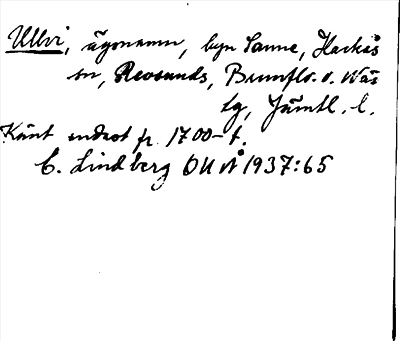 Ullvi, ägonamn, byn Sanne, Hackås
sn, Revsunds, Brunflo o. Näs
tg, Jämtl. l.
Känt endast fr. 1700-t.
C. Lindberg OUÅ 1937:65